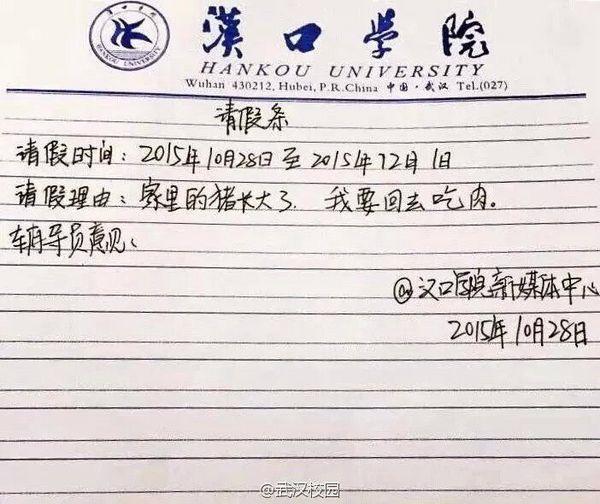 汉口学院
HANKOU UNIVERSITY
漢口學院
HANKOU UNIVERSITY
Wuhan 430212, Hubei, P.R.China 中国·武汉 Tel.(027)
请假条
请假时间：2015年10月28日至2015年12月1日
请假理由：家里的猪长大了，我要回去吃肉。
辅导员意见：
@汉口学院新媒体中心
2015年10月28日
@武汉校园